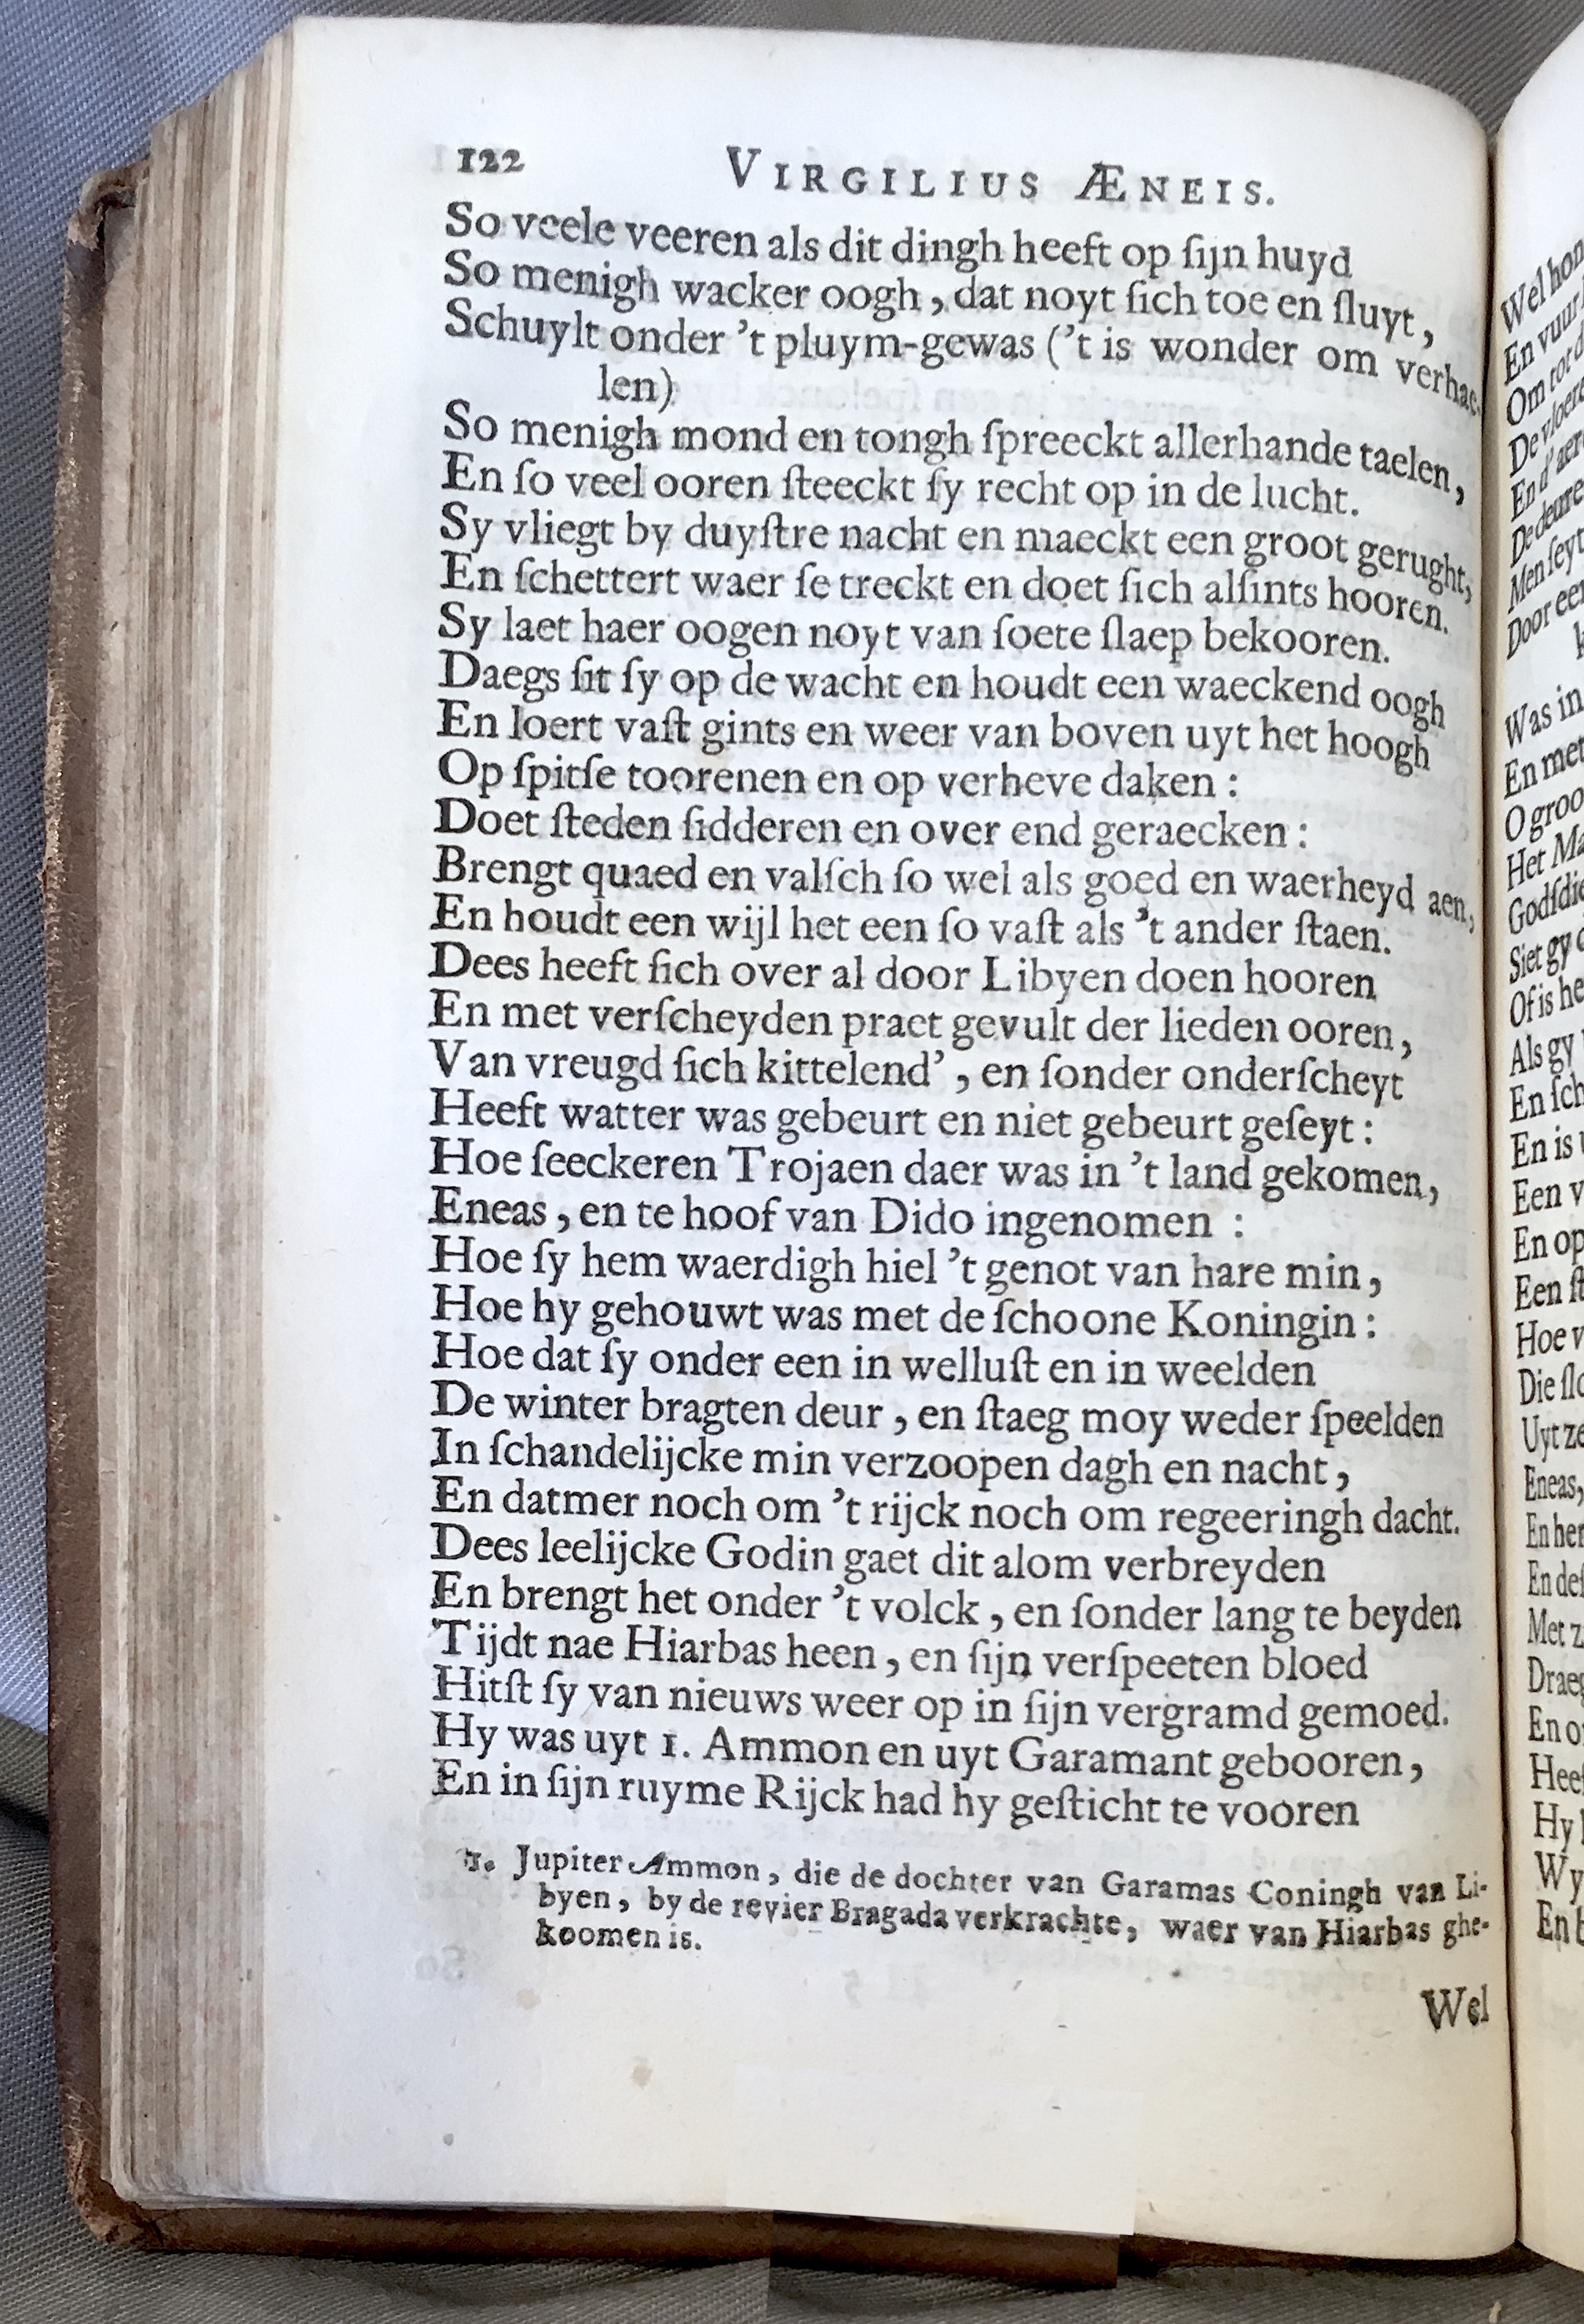 122 VIRGILIUS ÆNEIS.
So veele veeren als dit dingh heeft op ſijn huyd
So menigh wacker oogh, dat noyt ſich toe en ſluyt,
Schuylt onder 't pluym-gewas ('t is wonder om verhae-
len)
So menigh mond en tongh ſpreeckt allerhande taelen,
En ſo veel ooren ſteeckt ſy recht op in de lucht.
Sy vliegt by duyſtre nacht en maeckt een groot gerught,
En ſchettert waer ſe treckt en doet ſich alſints hooren.
Sy laet haer oogen noyt van ſoete ſlaep bekooren.
Daegs ſit ſy op de wacht en houdt een waeckend oogh
En loert vaſt gints en weer van boven uyt het hoogh
Op ſpitſe toorenen en op verheve daken:
Doet ſteden ſidderen en over end geraecken:
Brengt quaed en valſch ſo wel als goed en waerheyd aen,
En houdt een wijl het een ſo vaſt als 't ander ſtaen.
Dees heeft ſich over al door Libyen doen hooren
En met verſcheyden praet gevult der lieden ooren,
Van vreugd ſich kittelend', en ſonder onderſcheyt
Heeft watter was gebeurt en niet gebeurt geſeyt:
Hoe ſeeckeren Trojaen daer was in 't land gekomen,
Eneas, en te hoof van Dido ingenomen:
Hoe ſy hem waerdigh hiel 't genot van hare min,
Hoe hy gehouwt was met de ſchoone Koningin:
Hoe dat ſy onder een in welluſt en in weelden
De winter bragten deur, en ſtaeg moy weder ſpeelden
In ſchandelijcke min verzoopen dagh en nacht,
En datmer noch om 't rijck noch om regeeringh dacht.
Dees leelijcke Godin gaet dit alom verbreyden
En brengt het onder 't volck, en ſonder lang te beyden
Tijdt nae Hiarbas heen, en ſijn verſpeeten bloed
Hitſt ſy van nieuws weer op in ſijn vergramd gemoed.
Hy was uyt 1. Ammon en uyt Garamant gebooren,
En in ſijn ruyme Rijck had hy geſticht te vooren
1. Jupiter Ammon, die de dochter van Garamas Coningh van Li-
byen, by de revier Bragada verkrachte, waer van Hiarbas ghe-
koomen is.
Wel
Wel
En vuur
Om tot
En
Men ſeyt
Was in
En met
O groo
Het
Siet gy
Of is he
Als gy
En ſch
En is
Een
En op
Een
Hoe
Die
Eneas,
Met
Hy
Wy
En